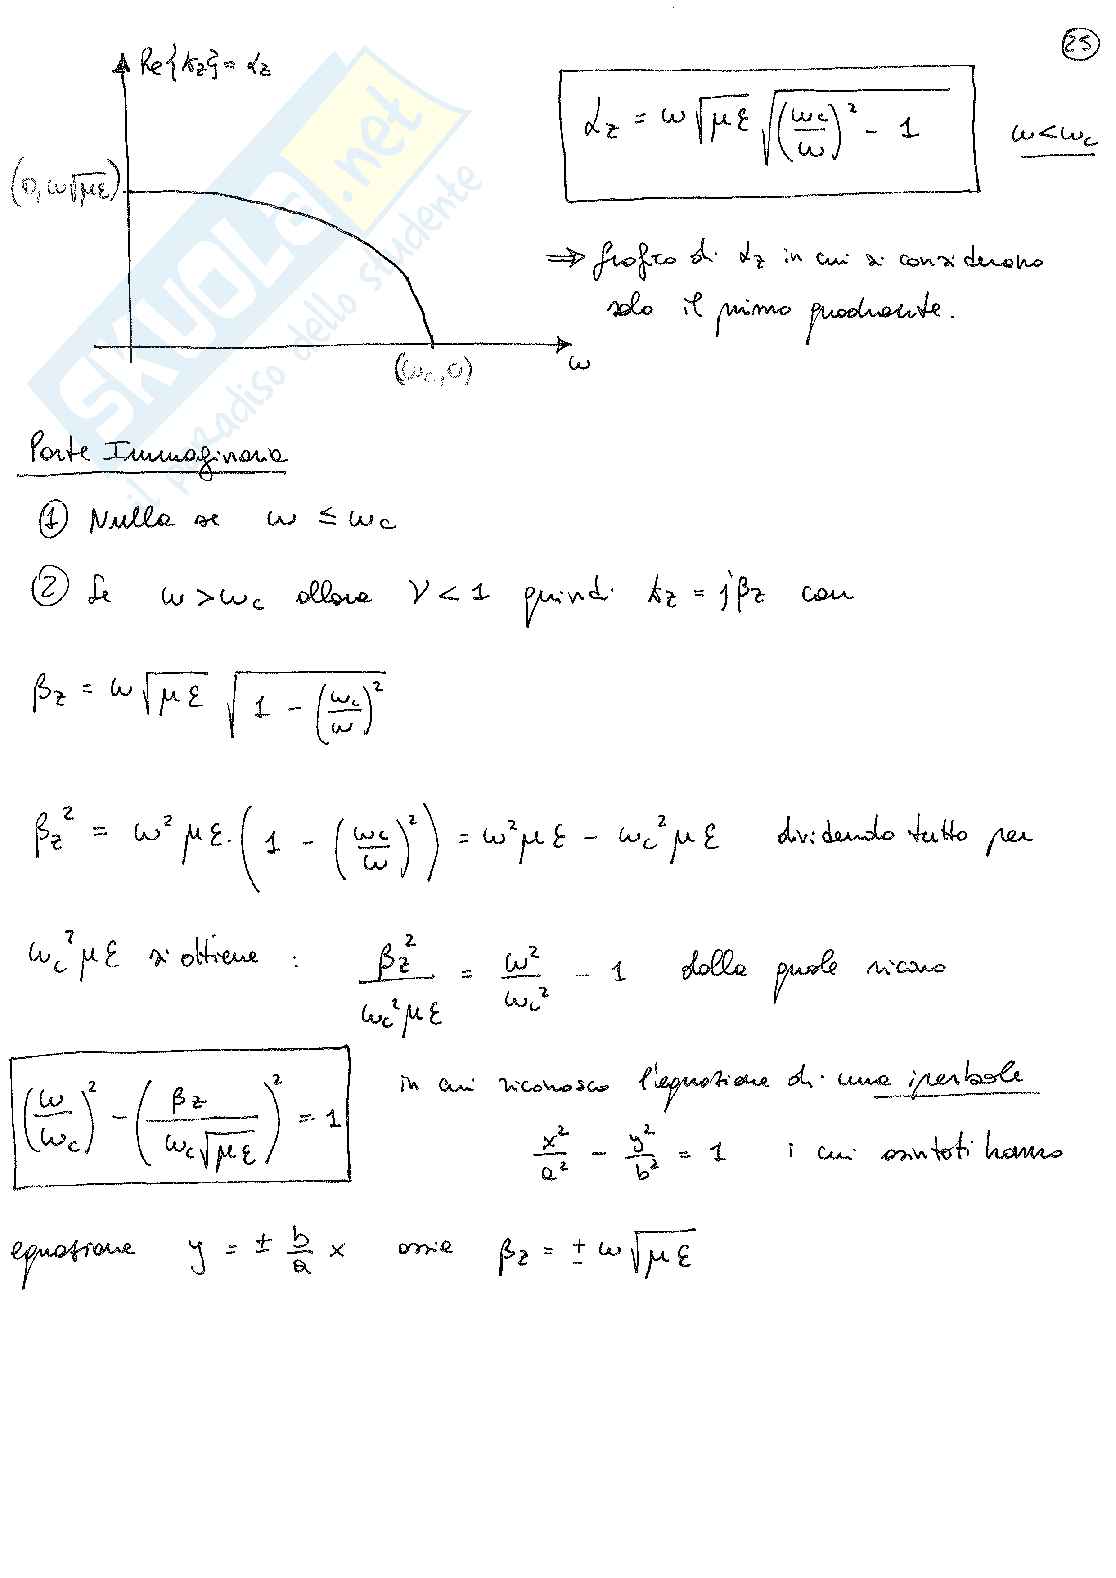 25
Re{kz} = αz
αz = ω√με √((ωc/ω)² - 1)
ω<ωc
(0, ω√με)
⇒ grafico di αz in cui si considerano
solo il primo quadrante.
(ωc, 0)
ω
SKUOLA.net
il paradiso dello studente
Parte Immaginaria
① Nulla se ω ≤ ωc
② Se ω > ωc allora ν < 1 quindi kz = jβz con
βz = ω√με √(1 - (ωc/ω)²)
βz² = ω² με·(1 - (ωc/ω)²) = ω² με - ωc² με dividendo tutto per
ωc² με si ottiene : βz²/ωc² με = ω²/ωc² - 1 dalla quale ricavo
(ω/ωc)² - (βz/ωc√με)² = 1 in cui riconosco l'equazione di una iperbole
x²/a² - y²/b² = 1 i cui asintoti hanno
equazione y = ± b/a x ossia βz = ± ω√με